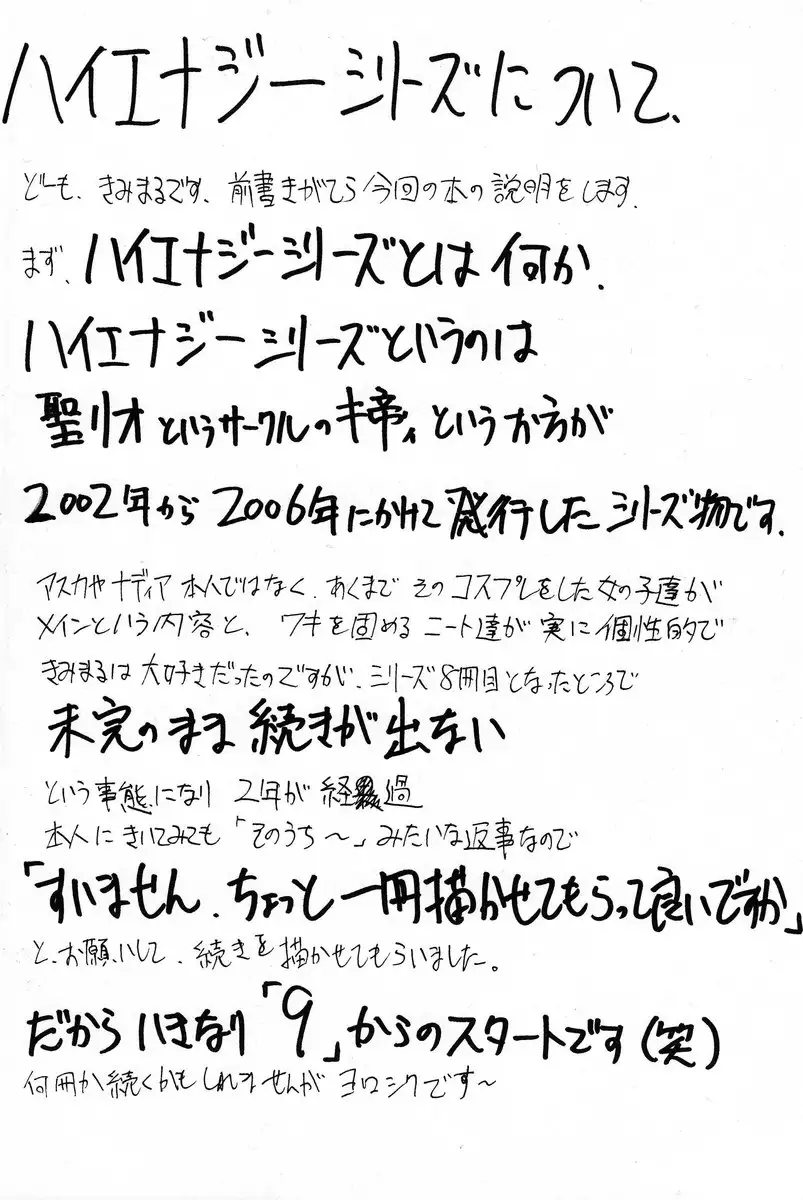 ハイエナジーシリーズについて、
どーも、きみまるです、前書きがてら今回の本の説明をします、
まず、ハイエナジーシリーズとは何か、
ハイエナジーシリーズというのは
聖リオというサークルのキ帝ィというお方が
2002年から2006年にかけて発行したシリーズ物です、
アスカやナディア本人ではなく、あくまでそのコスプレをした女の子達が
メインという内容と、ワキを固めるニート達が実に個性的で
きみまるは大好きだったのですが、シリーズ8冊目となったところで
未完のまま続きが出ない
という事態になり2年が経過
本人にきいてみても「そのうち〜」みたいな返事なので
「すいません、ちょっと一冊描かせてもらって良いですか」
と、お願いして、続きを描かせてもらいました。
だからいきなり「9」からのスタートです(笑)
何冊か続くかもしれませんがヨロシクです〜